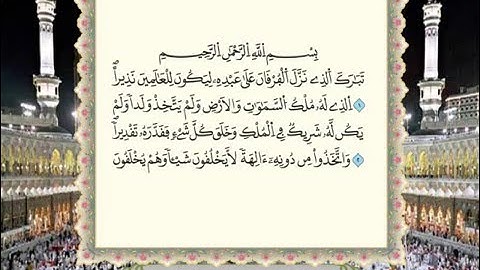 بِسْمِ اللَّهِ الرَّحْمَٰنِ الرَّحِيمِ
تَبَٰرَكَ اَ۬لذِے نَزَّلَ اَ۬لْفُرْقَانَ عَلَىٰ عَبْدِهِۦ لِيَكُونَ لِلْعَٰلَمِينَ نَذِيراً
١ اِ۬لذِے لَهُۥ مُلْكُ اُ۬لسَّمَٰوَٰتِ وَالَارْضِ وَلَمْ يَتَّخِذْ وَلَداً وَلَمْ
يَكُن لَّهُۥ شَرِيكٌ فِے اِ۬لْمُلْكِ وَخَلَقَ كُلَّ شَےْءٍ فَقَدَّرَهُۥ تَقْدِيراً
٢ وَاتَّخَذُواْ مِن دُونِهِۦٓ ءَالِهَةً لَّا يَخْلُقُونَ شَيْـٔاً وَهُمْ يُخْلَقُونَ